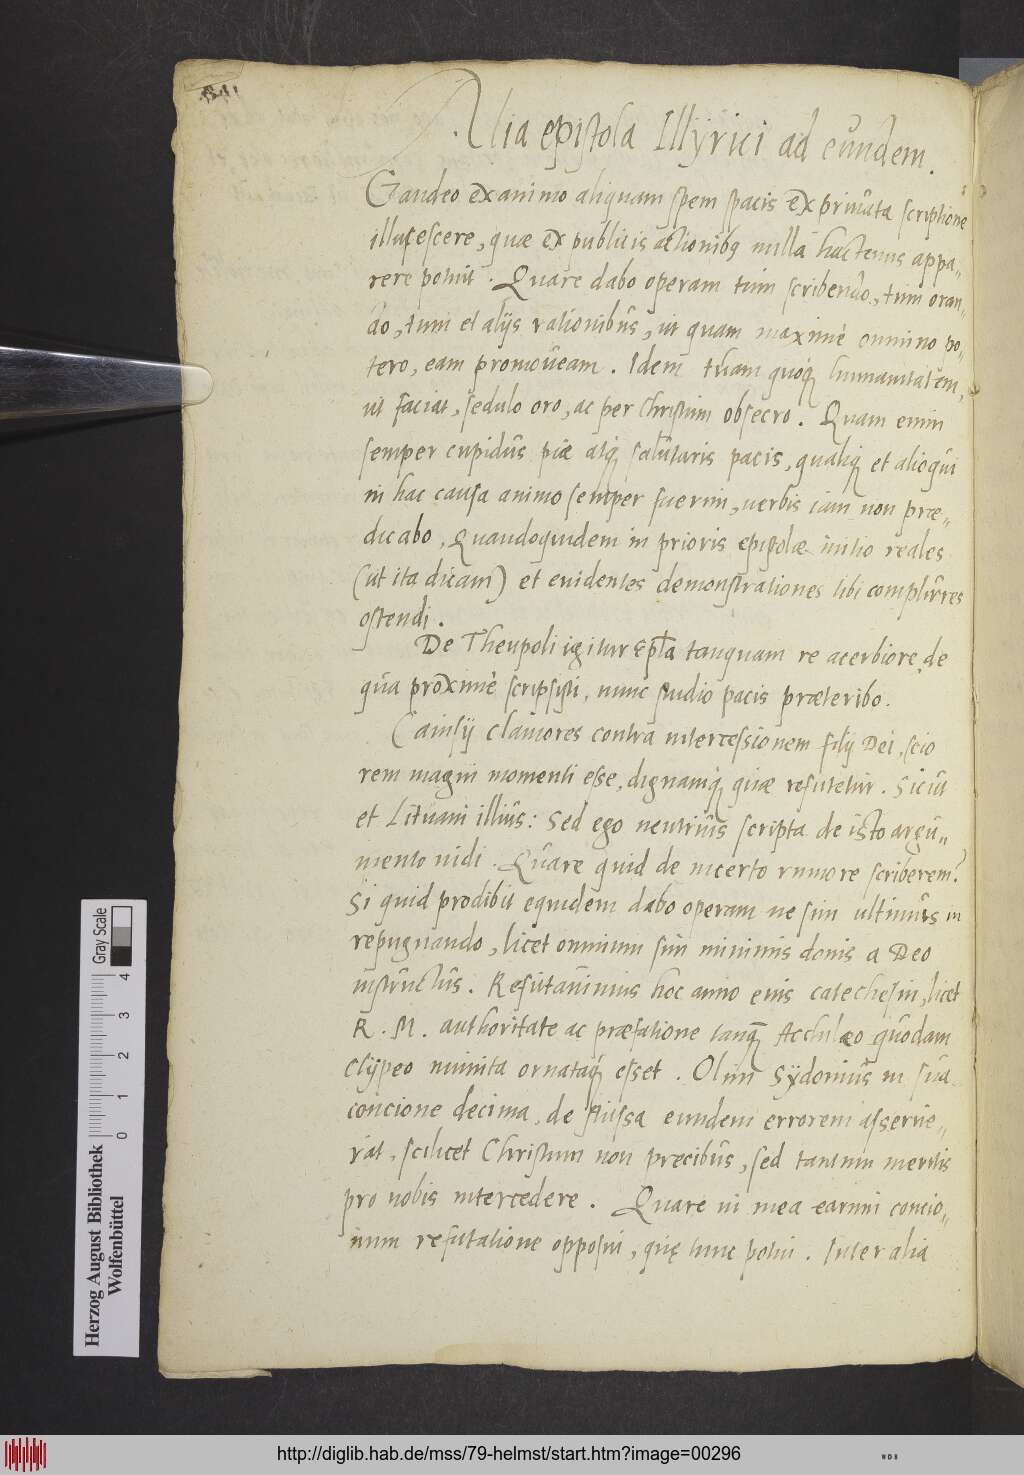 Alia epistola Illyrici ad eundem.
Gaudeo ex animo aliquam spem pacis ex priuata scriptione
illucescere, quae ex publicis actionibq nulla hactenus appa„
rere potuit. Quare dabo operam tum scribendo, tum oran„
do, tum et alijs rationibus, ut quam maximè omnino po„
tero, eam promoueam. Idem tuam quoq humanitatem,
ut faciat, sedulo oro, ac per Christum obsecro. Quam enim
semper cupidus piae atq salutaris pacis, qualiq et alioqui
in hac causa animo semper fuerim, uerbis iam non prae„
dicabo, Quandoquidem in prioris epistolae initio reales
(ut ita dicam) et euidentes demonstrationes tibi complures
ostendi.
De Theupoli igitur epla tanquam re acerbiore, de
qua proximè scripsisti, nunc studio pacis praeteribo.
Cansij clamores contra intercessionem filij Dei, scio
rem magni momenti esse, dignamq quae refutetur. Sicut
et Lituani illius: Sed ego neutrius scripta de isto argu„
mento uidi. Quare quid de incerto rumore scriberem?
Si quid prodibit equidem dabo operam ne sim ultimus in
repugnando, licet omnium sim minimis donis a Deo
instructus. Refutauimus hoc anno eius catechesin, licet
R. M. authoritate ac praefatione tanq Achilaeo quodam
clypeo munita ornataq esset. Olim Sydonius in sua
concione decima, de Missa eundem errorem asserue„
rat, scilicet Christum non precibus, sed tantum meritis
pro nobis intercedere. Quare in mea earum concio„
num refutatione opposui, quę tunc potui. Inter alia
Herzog August Bibliothek
Wolfenbüttel
0 1 2 3 4
Gray Scale
http://diglib.hab.de/mss/79-helmst/start.htm?image=00296
WDB